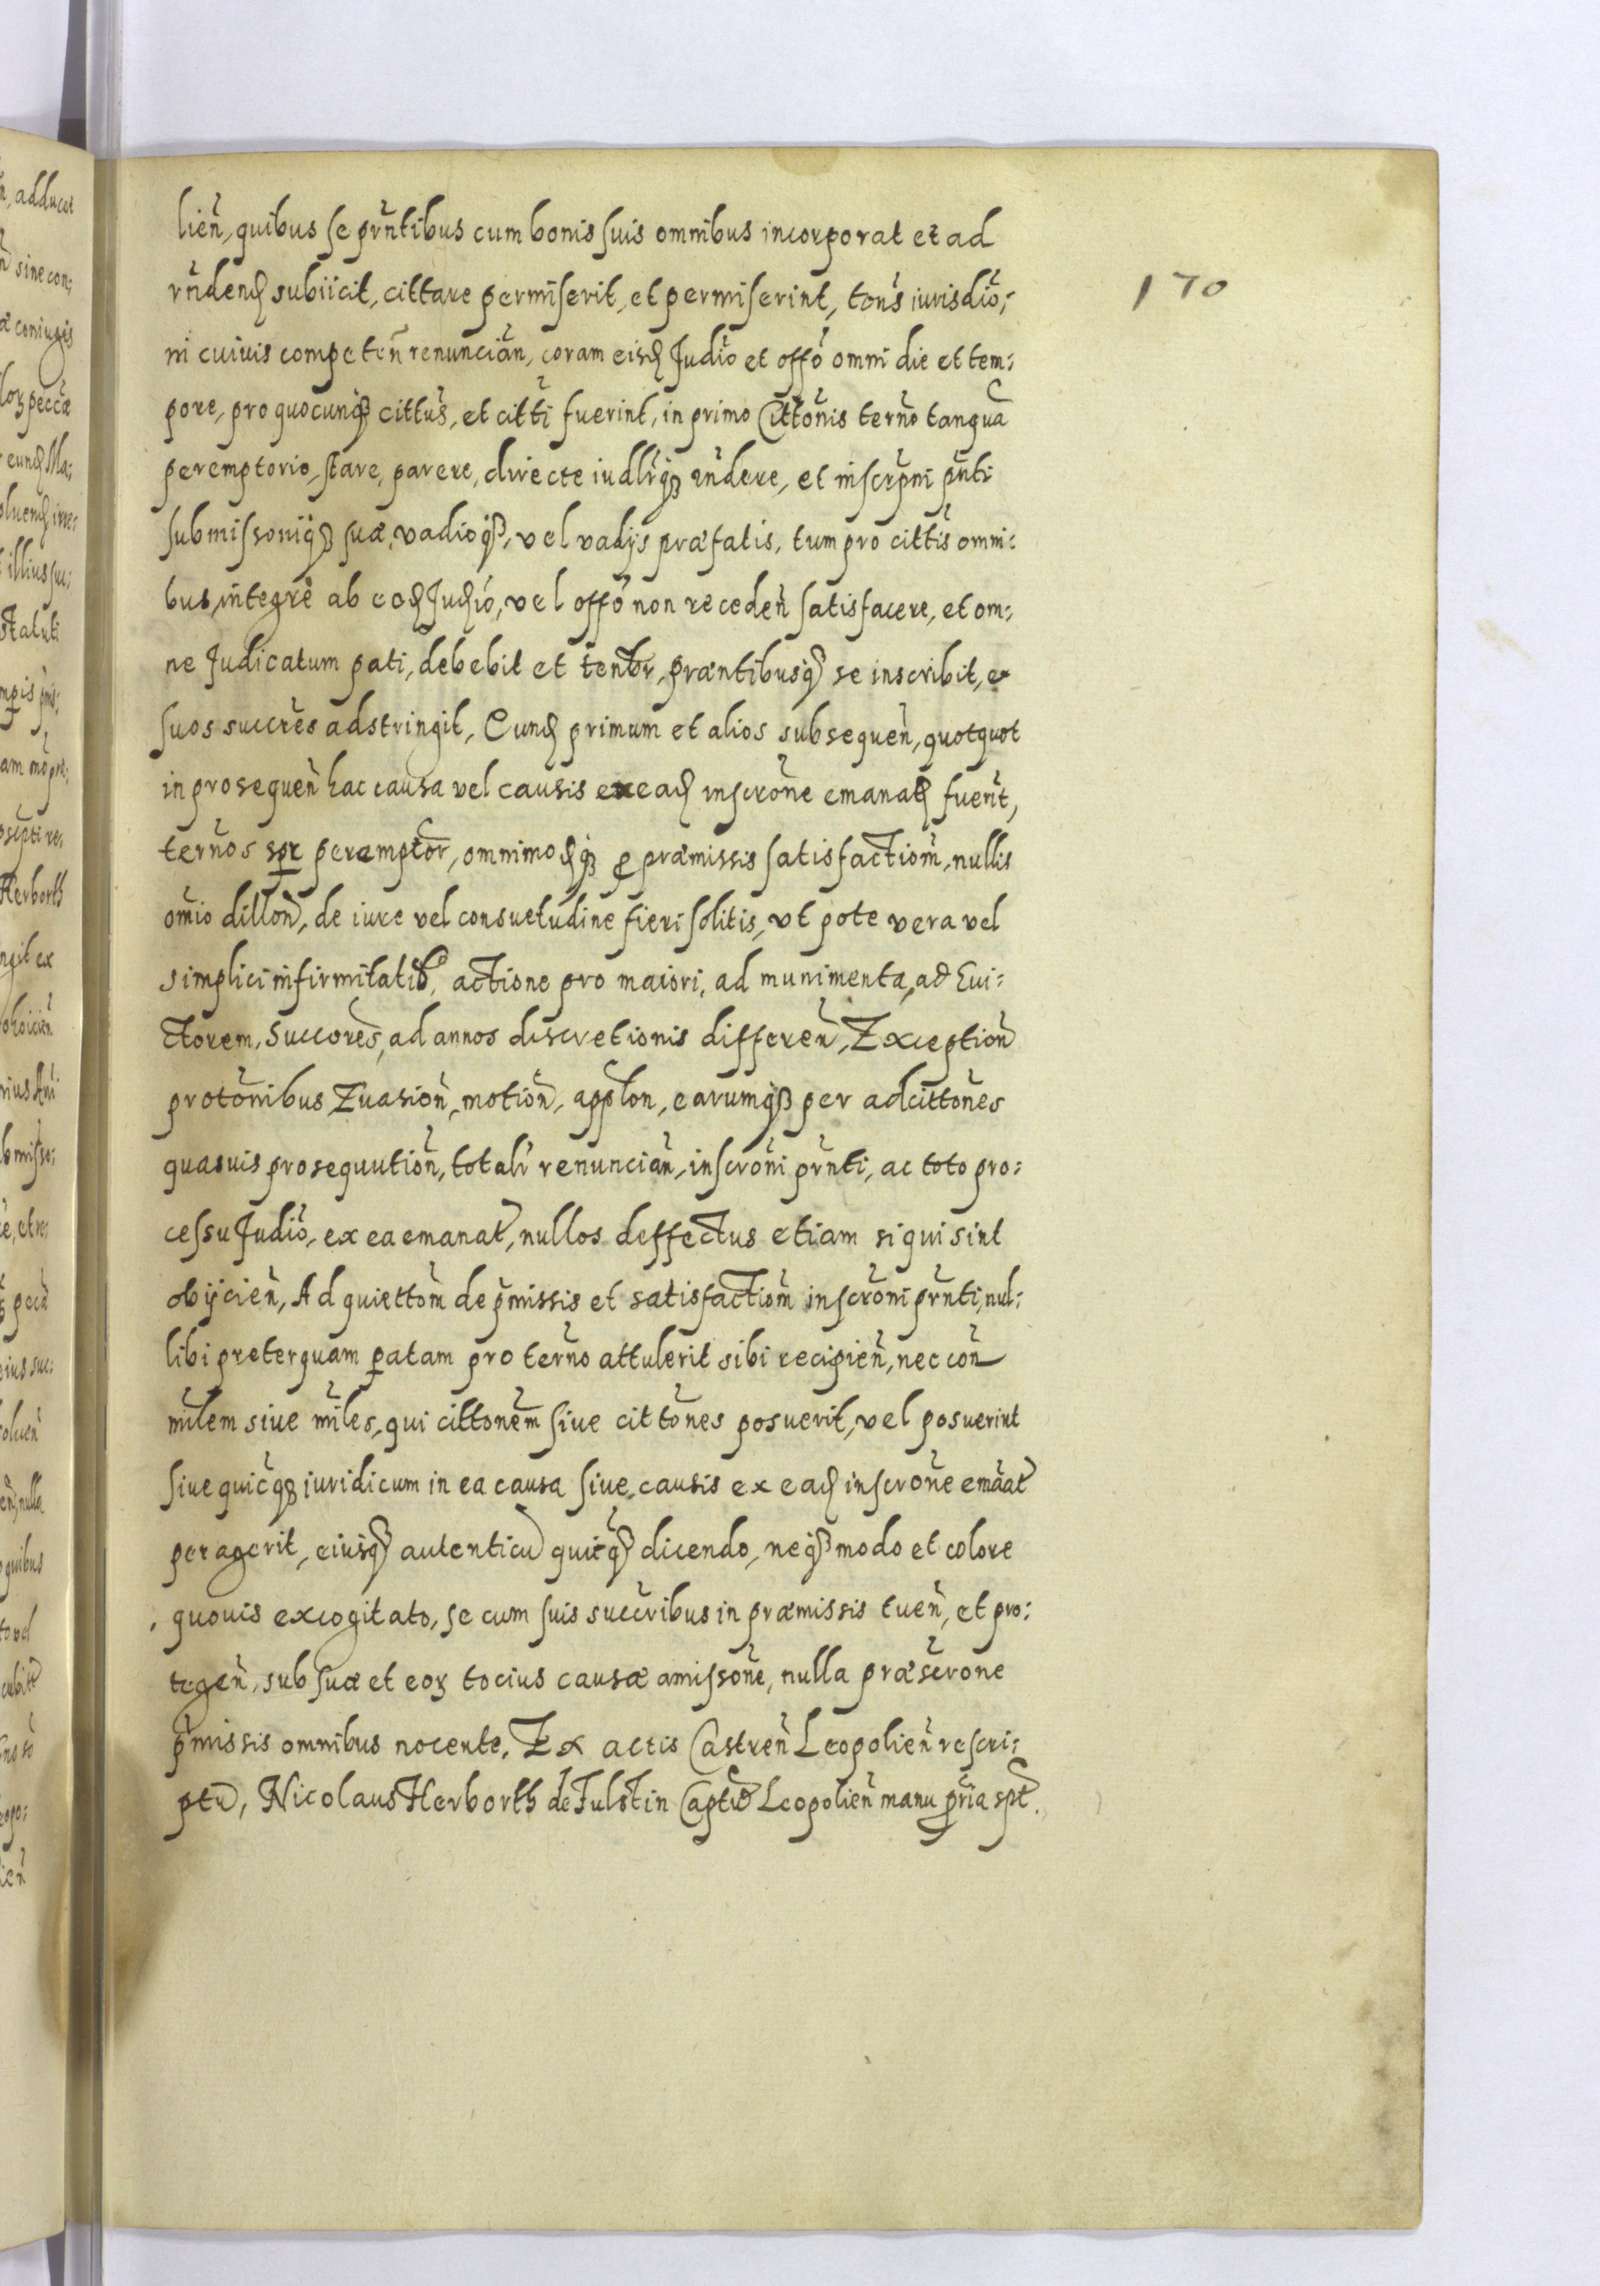 lien̄, quibus se prn̄tibus cum bonis suis omnibus incorporat et ad
rn̄dend subiicit, cittare permiserit, et permiserint, tōns iurisdiō:
170
ni cuiuis competen̄ renunciān, coram eisd Judiō et offō omni die et tem:
pore, pro quocunq₃ cittūs, et cittī fuerint, in primo Cittōnis tern̄o tanquā
peremptorio, stare, parere, directe iudlr̄q₃ rn̄dere, et inscrpn̄i pn̄ti
submissoniq₃ suæ, vadioq₃, vel vadijs præfatis, tum pro cittīs omni:
bus, integrè ab eod Judiō, vel offō non receden̄ satisfacere, et om:
ne Judicatum pati, debebit et tenbr, præntibusq₃ se inscribit, et
suos succrēs adstringit, Eund primum et alios subsequen̄, quotquot
in prosequen̄ hac causa vel causis ex ead inscrōne emanat fuerīt,
tern̄os spr peremptor, omnimodq₃ p præmissis satisfactiom̄, nullis
om̄io dillon̄, de iure vel consuetudine fieri solitis, vt pote vera vel
simplici infirmitatib₉, actione pro maiori, ad munimenta, ad Eui:
ctorem, Succorēs, ad annos discretionis differen̄, Exception̄
protōnibus Euasion̄, motion̄, applon̄, earumq₃ per adcittōnes
quasuis prosequution̄, totalr̄ renunciān, inscrōni prn̄ti, ac toto pro:
cessu Judiō, ex ea emanat, nullos deffectus etiam si qui sint
obijcien̄, Ad quiettom̄ de p̄missis et satisfactiom̄ inscrōni prn̄ti, nul:
libi preterquam patam pro tern̄o attulerit sibi recipien̄, nec con
mīlem siue mīles, qui cittonēm siue cittōnes posuerit, vel posuerint
siue quicq₃ iuridicum in ea causa siue causis ex ead inscrōne emāat
peragerit, eiusq₃ autenticū quicq₃ dicendo, neq₃ modo et colore
quouis excogitato, se cum suis succribus in præmissis tuen̄, et pro:
tegen̄, sub suæ et eoꝝ tocius causæ amissōne, nulla præscrone
p̄missis omnibus nocente. Ex actis Castren̄ Leopolien̄ rescri:
ptū, Nicolaus Herborth de Fulstin Captūs Leopolien̄ manu pr̄ia spt.